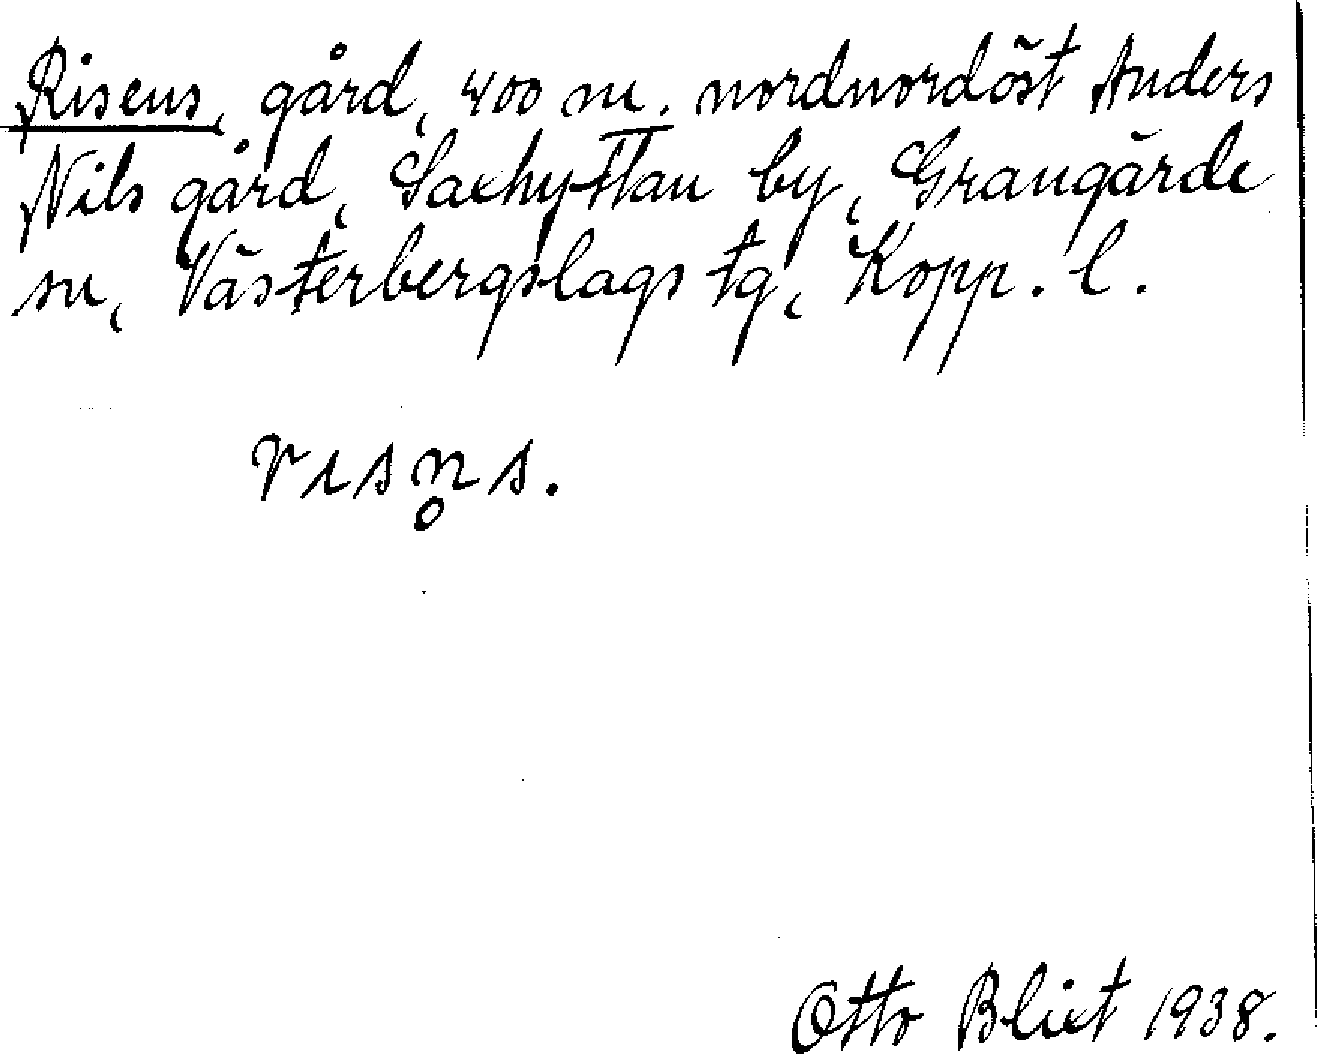 Risens, gård, 400 m. nordnordöst Anders
Nils gård, Saxhyttan by, Grangärde
sn, Västerbergslags tg, Kopp. l.
rısn̥s.
Otto Blixt 1938.